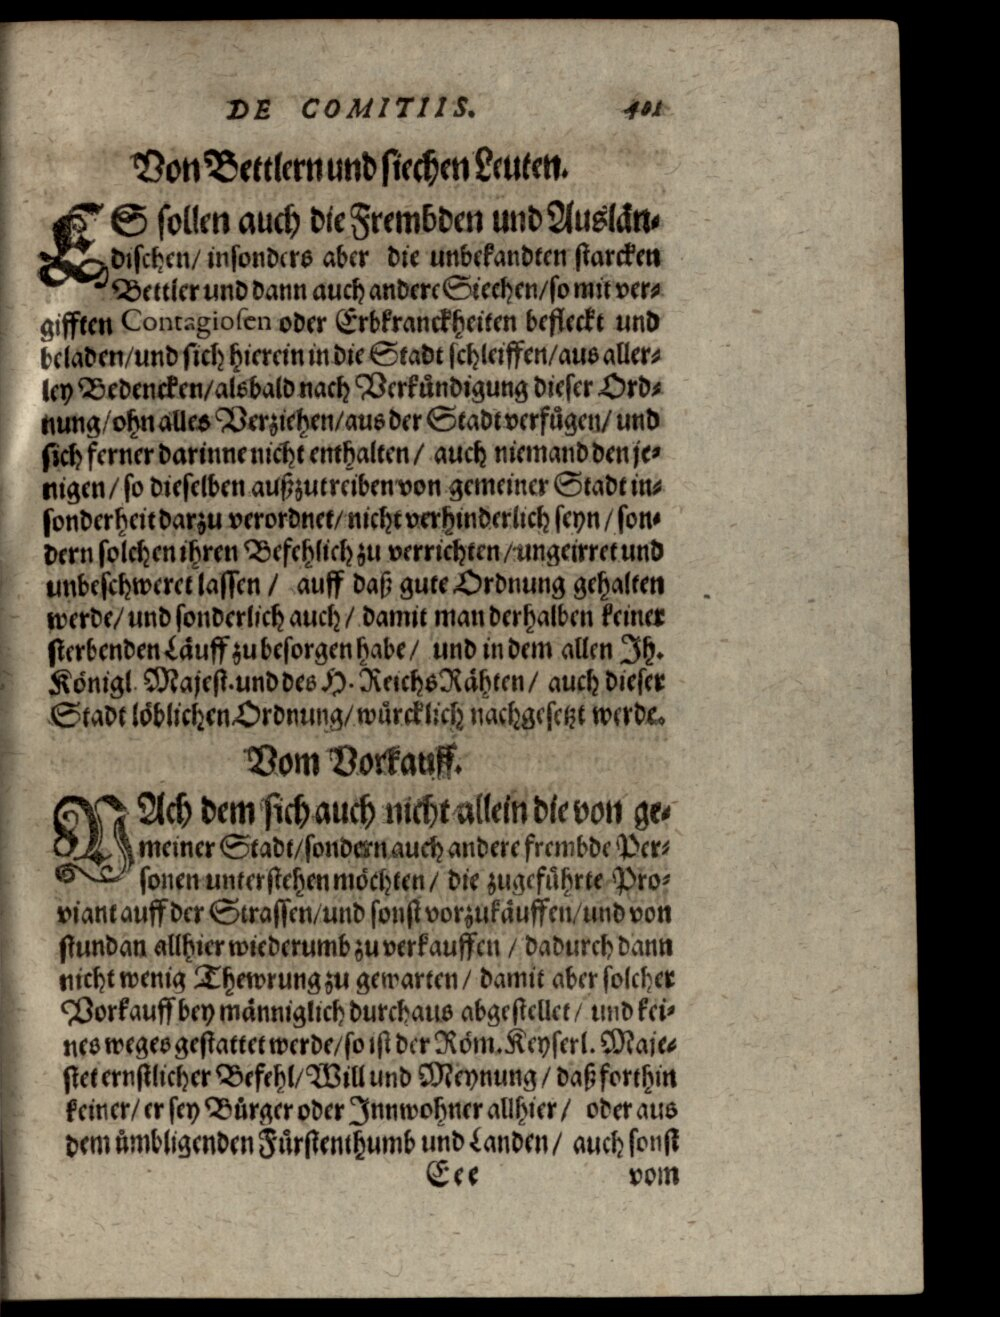 DE COMITIIS. 401
Von Bettlern und siechen Leuten.
ES sollen auch die Frembden und Auslän-
dischen/ insonders aber die unbekandten starcken
Bettler und dann auch andere Siechen/ so mit ver-
gifften Contagiosen oder Erbkranckheiten befleckt und
beladen/ und sich hierein in die Stadt schleiffen/ aus aller-
ley Bedencken/ alsbald nach Verkündigung dieser Ord-
nung/ ohn alles Verziehen/ aus der Stadt verfügen/ und
sich ferner darinne nicht enthalten/ auch niemand den je-
nigen/ so dieselben außzutreiben von gemeiner Stadt in-
sonderheit darzu verordnet/ nicht verhinderlich seyn/ son-
dern solchen ihren Befehlich zu verrichten/ ungeirret und
unbeschweret lassen/ auff daß gute Ordnung gehalten
werde/ und sonderlich auch/ damit man derhalben keiner
sterbenden Läuff zu besorgen habe/ und in dem allen Ih.
Königl. Majest. und des H. Reichs Rähten/ auch dieser
Stadt löblichen Ordnung/ würcklich nachgesetzt werde.
Vom Vorkauff.
NAch dem sich auch nicht allein die von ge-
meiner Stadt/ sondern auch andere frembde Per-
sonen unterstehen möchten/ die zugeführte Pro-
viant auff der Strassen/ und sonst vorzukäuffen/ und von
stund an allhier wiederumb zu verkauffen/ dadurch dann
nicht wenig Thewrung zu gewarten/ damit aber solcher
Vorkauff bey männiglich durchaus abgestellet/ und kei-
nes weges gestattet werde/ so ist der Röm. Keyserl. Maje-
stet ernstlicher Befehl/ Will und Meynung/ daß forthin
keiner/ er sey Bürger oder Innwohner allhier/ oder aus
dem ümbligenden Fürstenthumb und Landen/ auch sonst
Eee vom